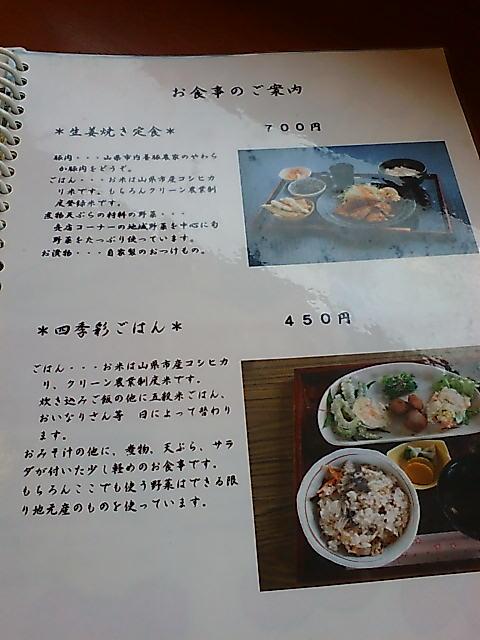 お食事のご案内
＊生姜焼き定食＊
７００円
豚肉・・・山県市内養豚農家のやわら
か豚肉をどうぞ。
ごはん・・・お米は山県市産コシヒカ
リ米です。もちろんクリーン農業制
度登録米です。
煮物天ぷらの材料の野菜・・・
売店コーナーの地域野菜を中心に旬
野菜をたっぷり使っています。
お漬物・・・自家製のおつけもの。
＊四季彩ごはん＊
４５０円
ごはん・・・お米は山県市産コシヒカ
リ、クリーン農業制度米です。
炊き込みご飯の他に五穀米ごはん、
おいなりさん等　日によって替わり
ます。
おみそ汁の他に、煮物、天ぷら、サラ
ダが付いた少し軽めのお食事です。
もちろんここでも使う野菜はできる限
り地元産のものを使っています。